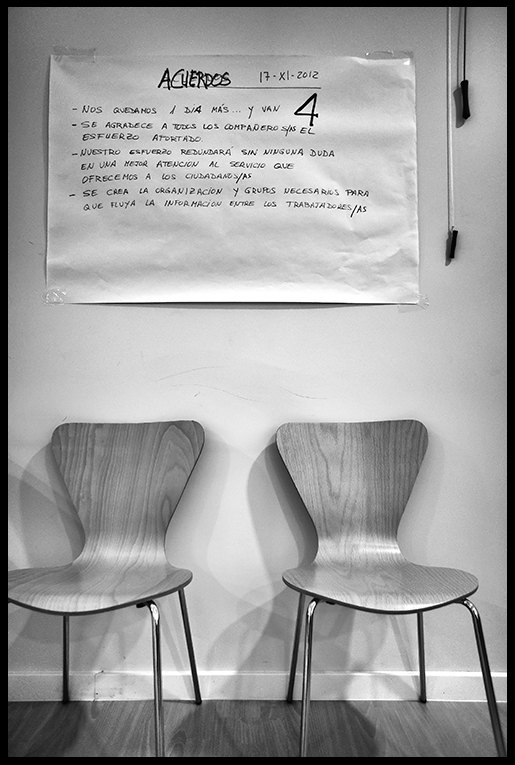 ACUERDOS 17-XI-2012
- NOS QUEDAMOS 1 DIA MÁS... Y VAN 4
- SE AGRADECE A TODOS LOS COMPAÑEROS/AS EL
ESFUERZO APORTADO.
- NUESTRO ESFUERZO REDUNDARÁ SIN NINGUNA DUDA
EN UNA MEJOR ATENCION AL SERVICIO QUE
OFRECEMOS A LOS CIUDADANOS/AS
- SE CREA LA ORGANIZACION Y GRUPOS NECESARIOS PARA
QUE FLUYA LA INFORMACION ENTRE LOS TRABAJADORES/AS